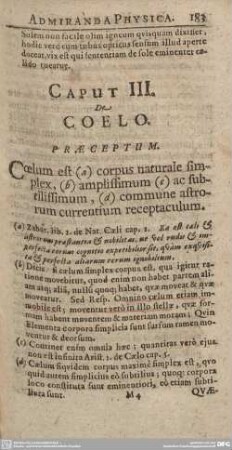 ADMIRANDA PHYSICA. 183
Solem non facile ohm igneum quisquam dixisset,
hodie verò cum tubus opticus sensum illud aperte
doceat, vix est qui sententiam de sole eminenter ca-
lido tueatur.
CAPUT III.
De
COELO.
PRÆCEPTUM.
Cœlum est (a) corpus naturale sim-
plex, (b) amplissimum (c) ac sub-
tilissimum, (d) commune astro-
rum currentium receptaculum.
(a) Zabar. lib. 1. de Nat. Cæli cap. 1. Ea est cali &
astrorum præstantia & nobilitas, ut vel rudis & im-
perfecta eorum cognitio expetibilior sit, quàm exquisi-
ta & perfecta aliarum rerum ignobilium.
(b) Dicis: si cælum simplex corpus est, qua igitur ra-
tione movebitur, quod enim non habet partem alii-
am atq; aliā, nihil quoq; habet, quæ moveat & quæ
moveatur. Sed Resp. Omnino cælum etiam im-
mobile est; moventur verò in illo stellæ, quæ for-
mam habent moventem & materiam motam; Quin
Elementa corpora simplicia sunt sursum tamen mo-
ventur & deorsum.
(c) Continet enim omnia hæc: quantitas verò ejus
non est infinita Arist. 1. de Cælo cap. 5.
(d) Cælum siquidem corpus maximè simplex est, qvo
quid autem simplicius eò subtilius; quoq; corpora
loco constituta sunt eminentiori, eò etiam subti-
liora sunt.
M 4
QVÆ-